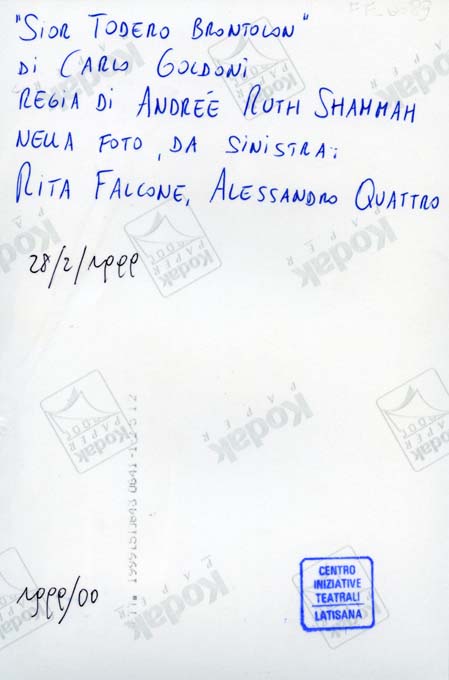 FF_0089
"SIOR TODERO BRONTOLON"
DI CARLO GOLDONI
REGIA DI ANDREÉ RUTH SHAMMAH
NELLA FOTO, DA SINISTRA:
RITA FALCONE, ALESSANDRO QUATTRO
28/2/1999
Kodak
PAPER
1999/00
CENTRO
INIZIATIVE
TEATRALI
LATISANA